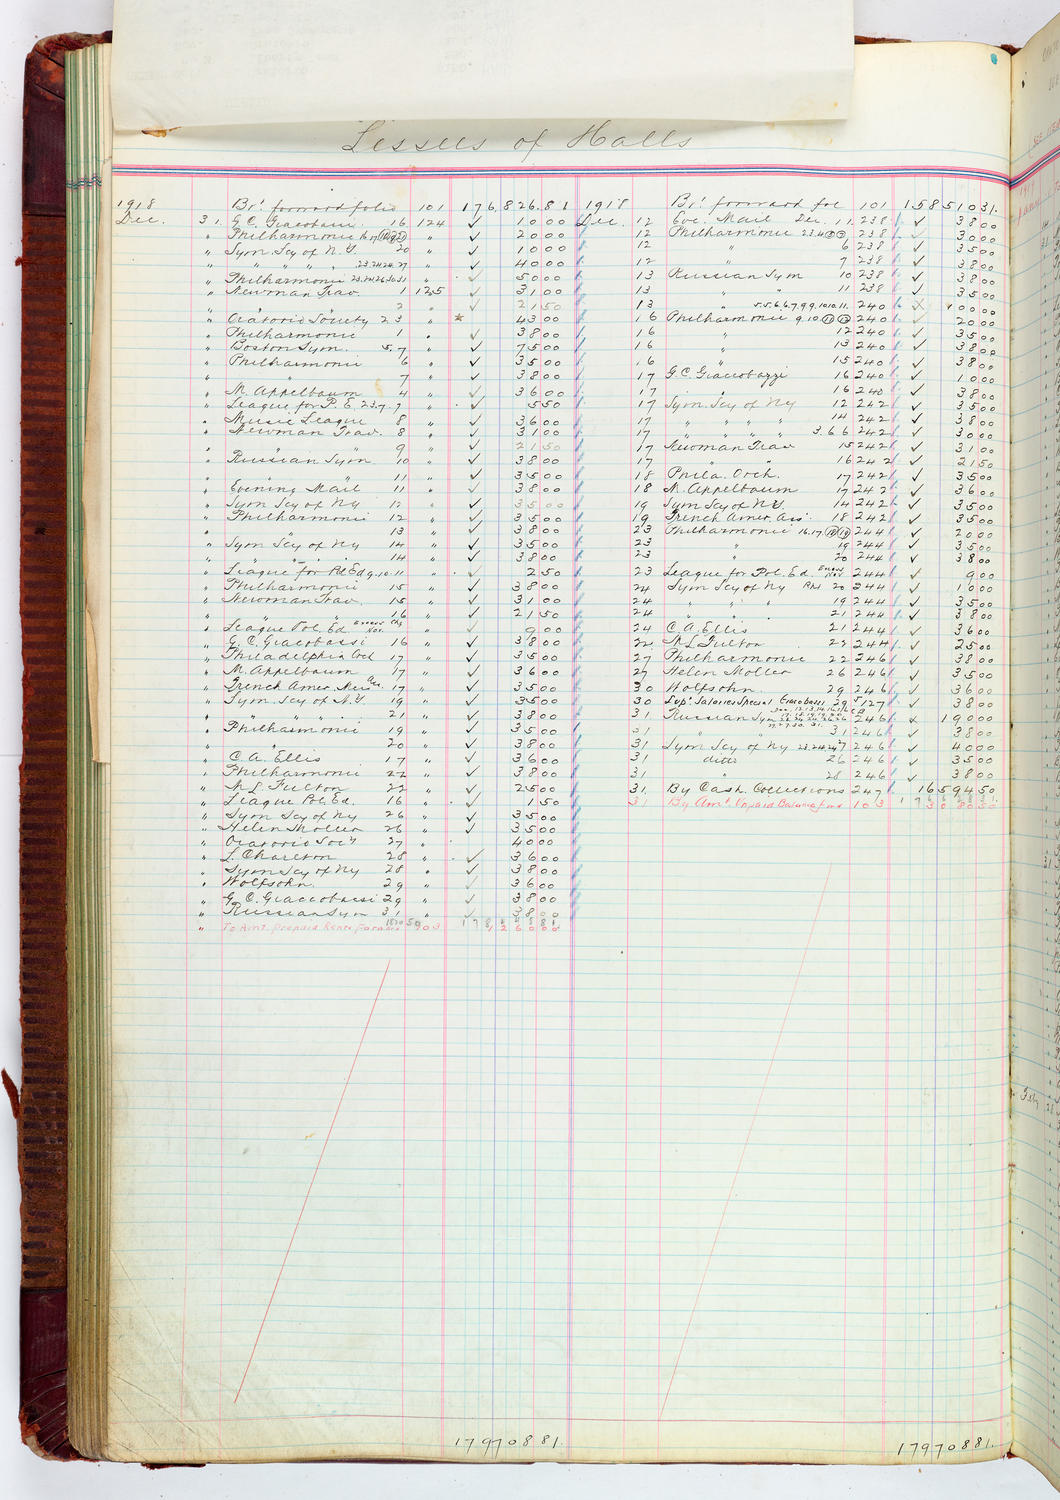 Lessees of Halls
1918 Br't forward folio 101 176,826.81
Dec. 31. G.C. Giacobassi 16 124 ✓ 1000
" Philharmonic 16 17 18 19 21 " ✓ 2000
" Sym. Scy of N.Y. 20 " ✓ 1000
" " " " " 23.24.26.27 " ✓ 4000
" Philharmonic 23.24.26.30.31 " ✓ 5000
" Newman Trav. 1 125 ✓ 3100
" " 2 " ✓ 2150
" Oratorio Society 23 " 4300
" Philharmonic 1 " ✓ 3800
" Boston Sym. 5.7 " ✓ 7500
" Philharmonic 6 " ✓ 3500
" " 7 " ✓ 3800
" M. Appelbaum 4 " ✓ 3600
" League for P. E. 2.3.7.7 " ✓ 550
" Music League 8 " ✓ 3600
" Newman Trav. 8 " ✓ 3100
" " 9 " ✓ 2150
" Russian Sym 10 " ✓ 3800
" " 11 " ✓ 3500
" Evening Mail 11 " ✓ 3800
" Sym Scy of Ny 12 " ✓ 3500
" Philharmonic 12 " ✓ 3500
" " 13 " ✓ 3800
" Sym Scy of Ny 14 " ✓ 3500
" " " 14 " ✓ 3800
" League for Pol Ed 9.10.11 " ✓ 250
" Philharmonic 15 " ✓ 3800
" Newman Trav. 15 " ✓ 3100
" " " 16 " ✓ 2150
" League Pol. Ed. Nov. " ✓ 900
" G.C. Giacobassi 16 " ✓ 3800
" Philadelphia Orch 17 " ✓ 3500
" M. Appelbaum 17 " ✓ 3600
" French Amer. Mus. Ass. 17 " ✓ 3500
" Sym. Scy of N.Y. 19 " ✓ 3500
" " " " 21 " ✓ 3800
" Philharmonic 19 " ✓ 3500
" " 20 " ✓ 3800
" C. A. Ellis 17 " ✓ 3600
" Philharmonic 22 " ✓ 3800
" N.L. Fulton 22 " ✓ 2500
" League Pol. Ed. 16 " ✓ 150
" Sym Scy of Ny 26 " ✓ 3500
" Helen Moller 26 " ✓ 3500
" Oratorio Soc'y 27 " 4000
" L. Charlton 28 " ✓ 3600
" Sym Scy of Ny 28 " ✓ 3800
" Wolfsohn 29 " ✓ 3600
" G. C. Giaccobassi 29 " ✓ 3800
" Russian Sym 31 " ✓ 3800
" To Amt. Prepaid Rents forward 903
17970881.
1918 Br't forward fol 101 15851031.
Dec. 12 Eve. Mail Dec. 11 238 ✓ 3800
12 Philharmonic 2.3.4 238 ✓ 3000
12 " 6 238 ✓ 3500
12 " 7 238 ✓ 3800
13 Russian Sym 10 238 ✓ 3800
13 " " 11 238 ✓ 3500
13 5.5.6.6.7.9.9.10.10.11. 240 10000
16 Philharmonic 9.10 11 12 240 ✓ 2000
16 " 12 240 ✓ 3500
16 " 13 240 ✓ 3800
16 " 15 240 ✓ 3800
17 G.C. Giaccobazzi 16 240 ✓ 1000
17 " 16 240 ✓ 3800
17 Sym. Scy of Ny 12 242 ✓ 3500
17 " " " " 14 242 ✓ 3800
17 " " " " 3.6.6 242 ✓ 3000
17 Newman Trav 15 242 ✓ 3100
17 " 16 242 ✓ 2150
18 Phila. Orch. 17 242 ✓ 3500
18 M. Appelbaum 17 242 ✓ 3600
19 Sym Scy of N.Y. 14 242 ✓ 3500
19 French Amer. Ass. 18 242 ✓ 3500
23 Philharmonic 16.17. 18 19 244 ✓ 2000
23 " 19 244 ✓ 3500
23 " 20 244 ✓ 3800
23 League for Pol. Ed. Nov 244 ✓ 900
24 Sym Scy of Ny 20 244 ✓ 1000
24 " " " 19 244 ✓ 3500
24 " " " 21 244 ✓ 3800
24 C. A. Ellis 21 244 ✓ 3600
24 N. L. Fulton 22 244 ✓ 2500
27 Philharmonic 22 246 ✓ 3800
27 Helen Moller 26 246 ✓ 3500
30 Wolfsohn. 29 246 ✓ 3600
30 Sup't Salaries Special Giacobassi 29 127 ✓ 3800
31 Russian Sym 246 19000
31 " 31 246 ✓ 3800
31 Sym Scy of Ny 23.24.26.27 246 ✓ 4000
31 ditto 26 246 ✓ 3500
31 " 28 246 ✓ 3800
31. By Cash. Collections 247 1659450
31 By Amt. Unpaid Balance forwd 103
17970881.